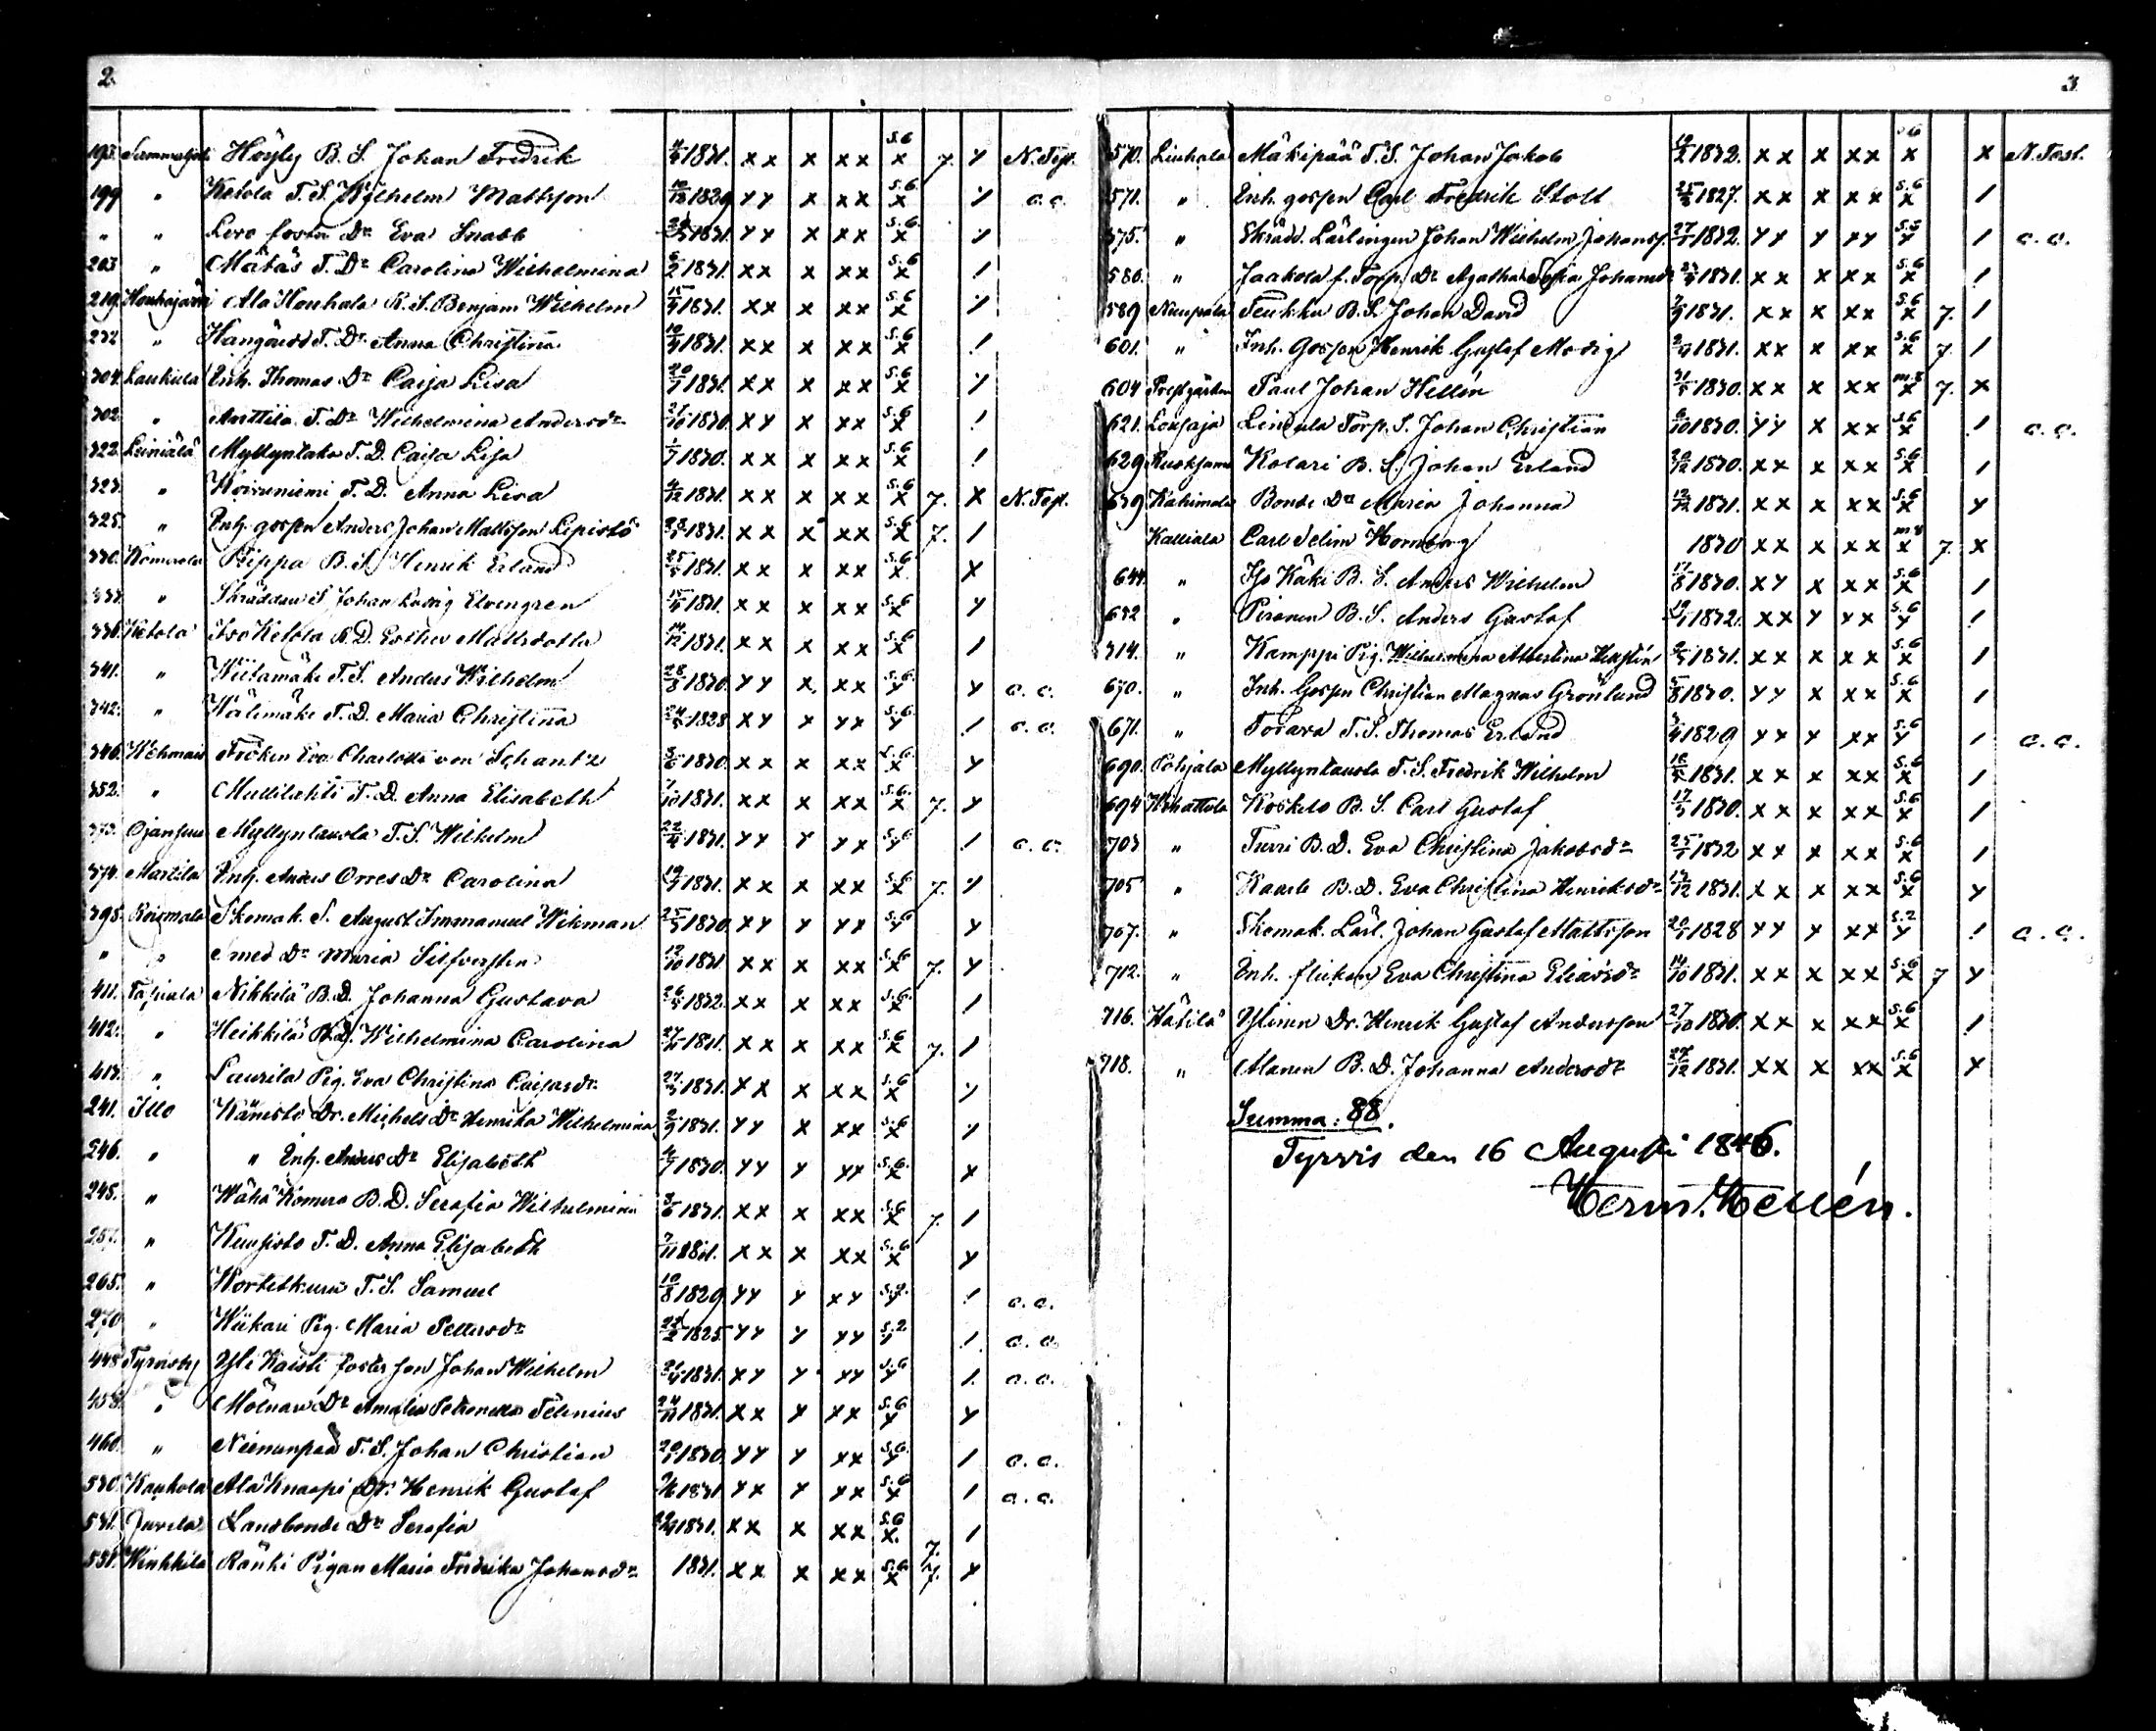 2.
193. Sammaljoki Höyly B. S. Johan Fredrik 4/4 1831. x x x x x s.6 x 7. y N. Test.
199 " Ketola T. S. Wilhelm Mattsson 1829 y y x x x s.6 x / a. a.
" " Levo foster Dr Eva Snabb 1831. y y x x x s.6 x /
203 " Mätäs T. Dr Carolina Wilhelmina 5/2 1831. x x x x x s.6 x /
219. Houhajärvi Ala Houhala R. S. Benjam Wilhelm 15/4 1831. x x x x x s.6 x /
232 " Hangäros T. Dr Anna Christina 10/9 1831. x x x x x s.6 x /
304. Laukula Inh. Thomas Dr Caija Lisa 20/7 1831. x x x x x s.6 x /
302. " Anttila T. Dr Wilhelmina Andersdr 21/10 1830. x y x x x s.6 x /
322. Leiniälä Myllyntaka T. D. Caisa Lisa 1/7 1830. x x x x x s.6 x /
323. " Koivuniemi T. D. Anna Lisa 4/12 1831. x x x x x s.6 x 7. x N. Test.
325. " Inh. gossen Anders Johan Mattsson Lepistö 1831. x x x x x s.6 x 7. /
330. Komerola Pippa B. S. Henrik Erland 25/5 1831. x x x x x s.6 x x
332 " Skräddar S Johan Ludvig Elvengren 15/4 1831. x x x x x s.6 x y
336. Ketola Iso Ketola R. D. Esther Mattsdotter 14/12 1831. x x x x x s.6 x /
341. " Wiitamäki T. S. Anders Wilhelm 28/3 1830. y y x x x s.6 y y a. a.
342. " Wälimäki T. D. Maria Christina 24/5 1828 x y x y x s.6 y / a. a.
346. Wehmais Fröken Eva Charlotta von Schantz 5/6 1830. x x x x x s.6 x y
352. " Mullilahti T. D. Anna Elisabeth 7/10 1831. x x x x x s.6 x 7. y
373. Ojansuu Myllyntausta T. S. Wilhelm 22/4 1831. y y y y x s.6 y / a. a.
374. Martila Inh. Anders Orres Dr Carolina 19/7 1831. x x x x x s.6 x 7. /
395. Roismala Skomak. S. August Immanuel Wikman 25/3 1830 x y y y y s.6 y y
" " Smed Dr Maria Silfversten 12/10 1831 x x x x x s.6 x 7. y
411. Tapiala Nikkilä B. D. Johanna Gustava 26/5 1832. x x x x x s.6 x /
412. " Heikkilä B. D. Wilhelmina Carolina 27/10 1831. x x x x x s.6 x 7. /
413. " Laurila Pig. Eva Christina Caisasdr 27/3 1831. x x x x x s.6 x /
241. Illo Känistö Dr. Michels Dr Henrika Wilhelmina 2/9 1831. y y x x x s.6 x /
246. " " Inh. Anders Dr Elisabeth 4/7 1830. y y y y y s.6. x x
245. " Wähä Komero B. D. Serafia Wilhelmina 3/6 1831. x x x x x s.6 x 7. /
257. " Kuusisto T. D. Anna Elisabeth 7/11 1831. x x x x x s.6 x y
265. " Kortetkuru T. S. Samuel 10/8 1829. y y y x y s.2. y / a. a.
270. " Wiikari Pig. Maria Pettersdr 22/2 1825. y y y y y s.2 y / a. a.
448 Tyrvisby Yli Kaisti foster son Johan Wilhelm 1831. x y y y y s.6 y / a. a.
458 " Mölnare Dr Amalia Petronella Telenius 24/11 1831. x x y x x s.6 y y
460. " Niemenpää T. S. Johan Christian 20/1 1830. y y y x x s.6. y / a. a.
530. Kaukola Ala Knaapi Dr. Henrik Gustaf 1831 y x y y x s.6 y / a. a.
531. Junela Landbonde Dr Serafia 1831. x x x x x s.6 x. 7. /
551. Kinkkilä Ränki Pigan Maria Fredrika Johansdr 1831. x x x x x s.6 x 7. x
3
570. Liuhala Mäkipää T. S. Johan Jakob 1832. x x x x x s.6 x x N. Test.
571. " Inh. gossen Carl Fredrik Stolt 25/2 1827. x x x x x s.6 x /
575. " Skrädd. Lärlingen Johan Wilhelm Johanss. 27/7 1832. y y y y y s.6 y / a. a.
580. " Jaakola f. Torp. Dr Agatha Sofia Johansdr 1831. x x x x x s.6 x /
589 Nuupala Teukku B. S. Johan David 7/9 1831. x x x x x s.6 x 7. /
601. " Inh. Gossen Henrik Gustaf Modig 1831. x x x x x s.6 x 7. /
604 Prestgården Paul Johan Hellén 31/5 1830. x x x x x m.8 x 7. x
621. Lousaja Lindula Torp. S. Johan Christian 6/10 1830. y y x x x s.6 x / a. a.
629 Ruoksamo Kolari B. S. Johan Erland 20/12 1830. x x x x x s.6 x /
639 Kahimala Bonde Dr Maria Johanna 12/12 1831. x x x x x s.6 x y
Kalliala Carl Selim Hornborg 1830 x x x x x m.8 x 7. x
644. " Iso Käki B. S. Anders Wilhelm 17/8 1830. x y x x x s.6 x /
652 " Pironen B. S. Anders Gustaf 19/1 1832. x x y y x s.6 y /
714. " Kamppi Pig. Wilhelmina Albertina 1831. x x x x x s.6 x /
670. " Inh. Gossen Christian Magnus Grönlund 5/8 1830. y y x x x s.6 x /
671. " Torava T. S. Thomas Erland 1829 y y y x x s.6 y / a. a.
690. Pohjala Myllyntausta T. S. Fredrik Wilhelm 1831. x x x x x s.6 x /
694 Wehattula Koskelo B. S. Carl Gustaf 17/3 1830. x x x x x s.6 x /
703 " Turri B. D. Eva Christina Jakobsdr 25/1 1832 x x x x x s.6 x /
705 " Kaarle B. D. Eva Christina Henriksdr 13/12 1831. x x x x x s.6 x y
707. " Skomak. Lärl. Johan Gustaf Mattsson 1828 y y y x x s.2 y / a. a.
712. " Inh. flickan Eva Christina Eliasdr 14/10 1831. x x x x x s.6 x 7 y
716. Häsilä Ylinen Dr. Henrik Gustaf Andersson 27/10 1830. x x x x x s.6 x /
718. " Alanen B. D. Johanna Andersdr 1831. x x x x x s.6 x x
Summa: 88.
Tyrvis den 16 Augusti 1846.
Herm. Hellén.